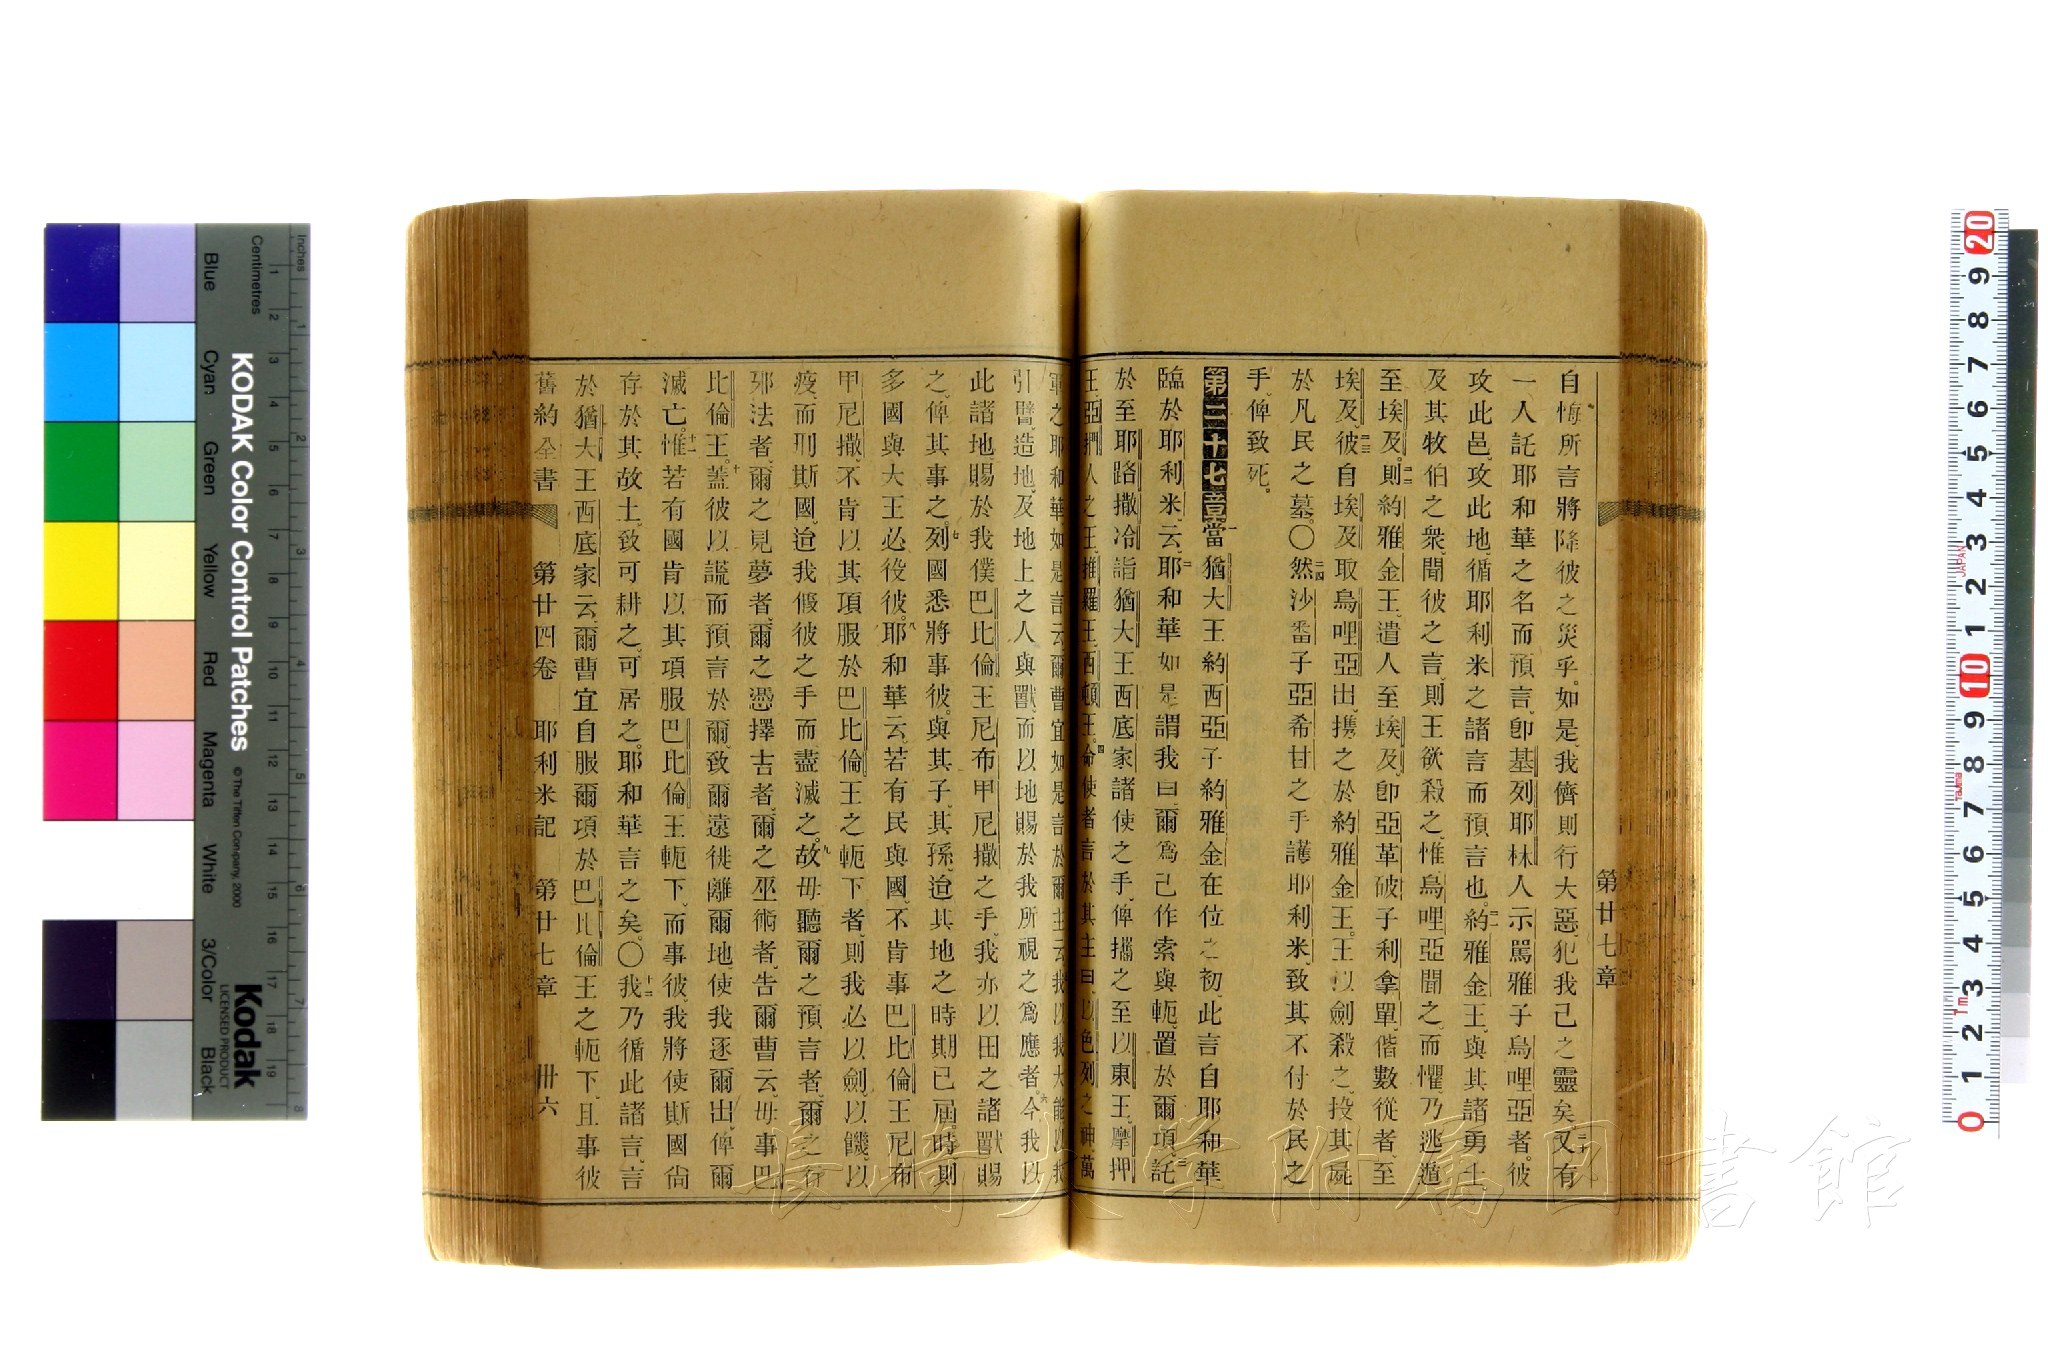 第廿七章
自悔所言將降彼之災乎。如是、我儕則行大惡、犯我己之靈矣。二十又有
一人託耶和華之名而預言、卽基列耶林人示罵雅子烏哩亞者。彼
攻此邑、攻此地、循耶利米之諸言而預言也。二一約雅金王、與其諸勇士
及其牧伯之衆、聞彼之言、則王欲殺之、惟烏哩亞聞之、而懼乃逃遁
至埃及。二二則約雅金王、遣人至埃及、卽亞革破子利拿單、偕數從者、至
埃及。二三彼自埃及取烏哩亞出、携之於約雅金王。王以劍殺之、投其屍
於凡民之墓。〇二四然沙番子亞希甘之手、護耶利米、致其不付於民之
手、俾致死。
第二十七章 一當猶大王約西亞子約雅金在位之初、此言自耶和華
臨於耶利米、云、二耶和華如是謂我曰、爾爲己作索與軛、置於爾項、三託
於至耶路撒冷詣猶大王西底家諸使之手、俾攜之至以東王、摩押
王、亞捫人之王、推羅王、西頓王。四命使者言於其主曰、以色列之神、萬
軍之耶和華如是言云、爾曹宜如是言於爾主云、我以我大能、以我
引臂、造地、及地上之人與獸、而以地賜於我所視之爲應者。六今我以
此諸地、賜於我僕巴比倫王尼布甲尼撒之手、我亦以田之諸獸賜
之、俾其事之。七列國悉將事彼、與其子、其孫、迨其地之時期已屆。時則
多國與大王必役彼。八耶和華云、若有民與國、不肯事巴比倫王尼布
甲尼撒、不肯以其項服於巴比倫王之軛下者、則我必以劍、以饑、以
疫、而刑斯國、迨我假彼之手而盡滅之。九故毋聽爾之預言者、爾之行
邪法者、爾之見夢者、爾之憑擇吉者、爾之巫術者、告爾曹云、毋事巴
比倫王。十蓋彼以謊而預言於爾、致爾遠徙離爾地、使我逐爾出、俾爾
滅亡。十一惟若有國肯以其項服巴比倫王軛下、而事彼、我將使斯國尙
存於其故土、致可耕之、可居之。耶和華言之矣。〇十二我乃循此諸言、言
於猶大王西底家云、爾曹宜自服爾項於巴比倫王之軛下、且事彼
舊約全書 第廿四卷 耶利米記 第廿七章 卅六
KODAK Color Control Patches
© The Tiffen Company, 2000
Kodak
LICENSED PRODUCT
Inches
Centimetres
Blue
Cyan
Green
Yellow
Red
Magenta
White
3/Color
Black
長崎大学附属図書館